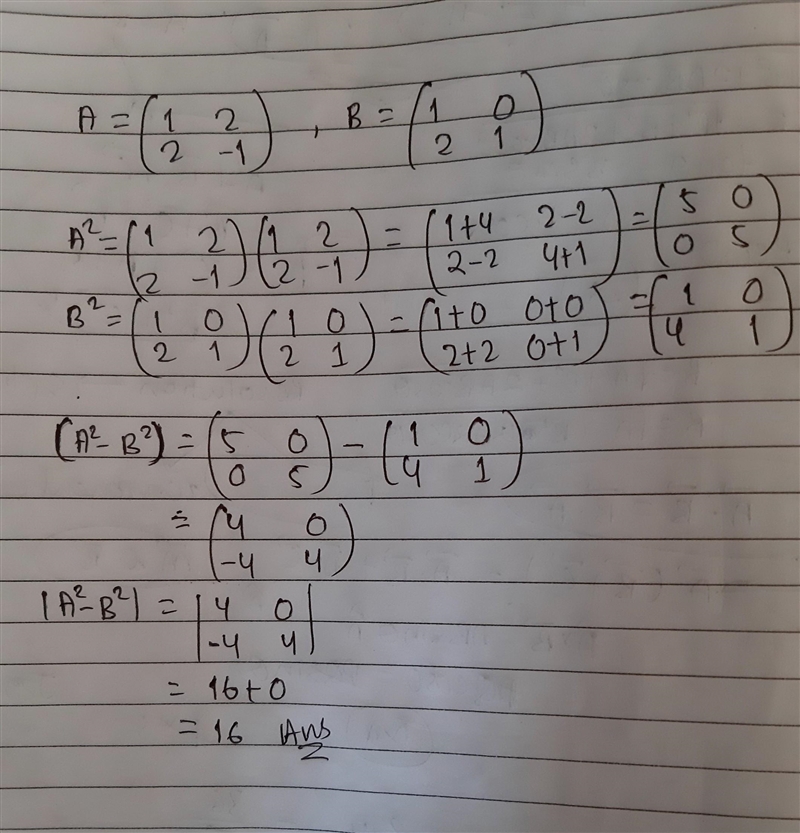 A = (1 2 / 2 -1) , B = (1 0 / 2 1)
A² = (1 2 / 2 -1) (1 2 / 2 -1) = (1+4 2-2 / 2-2 4+1) = (5 0 / 0 5)
B² = (1 0 / 2 1) (1 0 / 2 1) = (1+0 0+0 / 2+2 0+1) = (1 0 / 4 1)
(A² - B²) = (5 0 / 0 5) - (1 0 / 4 1)
= (4 0 / -4 4)
|A² - B²| = |4 0 / -4 4|
= 16+0
= 16 Ans